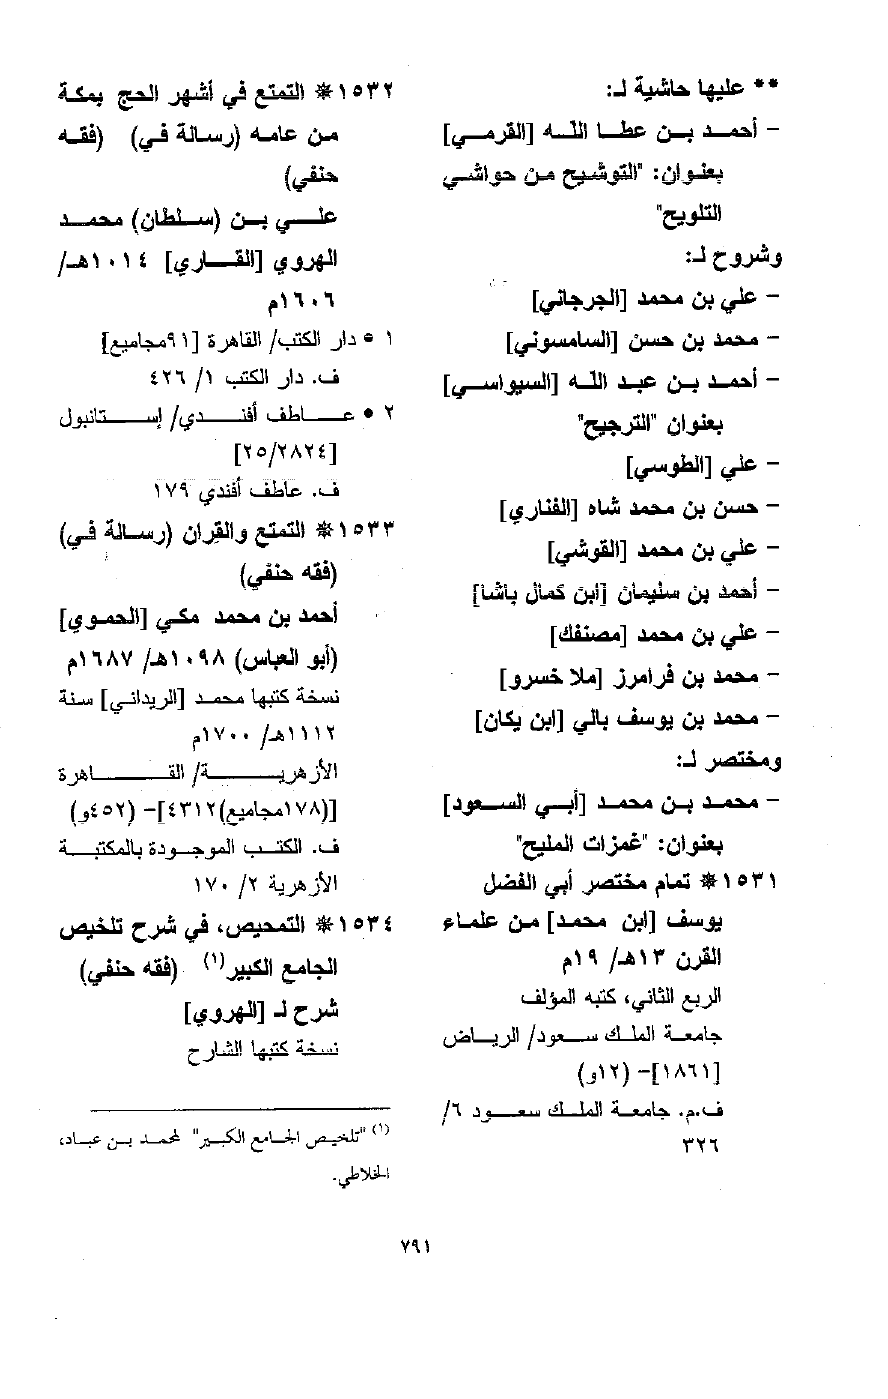 ** عليها حاشية لـ:
- أحمد بن عطا الله [القرمي]
بعنوان: "التوشيح من حواشي
التلويح"
وشروح لـ:
- علي بن محمد [الجرجاني]
- محمد بن حسن [السامسوني]
- أحمد بن عبد الله [السيواسي]
بعنوان "الترجيح"
- علي [الطوسي]
- حسن بن محمد شاه [الفناري]
- علي بن محمد [القوشي]
- أحمد بن سليمان [ابن كمال باشا]
- علي بن محمد [مصنفك]
- محمد بن فرامرز [ملا خسرو]
- محمد بن يوسف بالي [ابن يكان]
ومختصر لـ:
- محمد بن محمد [أبي السعود]
بعنوان: "غمزات المليح"
١٥٣١ * تمام مختصر أبي الفضل
يوسف [ابن محمد] من علماء
القرن ١٣هـ/ ١٩م
الربع الثاني، كتبه المؤلف
جامعة الملك سعود/ الرياض
[١٨٦١]- (١٢و)
ف.م. جامعة الملك سعود ٦/
٣٢٦
١٥٣٢ * التمتع في أشهر الحج بمكة
من عامه (رسالة في) (فقه
حنفي)
علي بن (سلطان) محمد
الهروي [القاري] ١٠١٤هـ/
١٦٠٦م
١ • دار الكتب/ القاهرة [٩١مجاميع]
ف. دار الكتب ١/ ٤٢٦
٢ • عاطف أفندي/ إستانبول
[٢٥/٢٨٢٤]
ف. عاطف أفندي ١٧٩
١٥٣٣ * التمتع والقران (رسالة في)
(فقه حنفي)
أحمد بن محمد مكي [الحموي]
(أبو العباس) ١٠٩٨هـ/ ١٦٨٧م
نسخة كتبها محمد [الريداني] سنة
١١١٢هـ/ ١٧٠٠م
الأزهرية/ القاهرة
[(١٧٨مجاميع)٤٣١٢]- (٤٥٢و)
ف. الكتب الموجودة بالمكتبة
الأزهرية ٢/ ١٧٠
١٥٣٤ * التمحيص، في شرح تلخيص
الجامع الكبير(١) (فقه حنفي)
شرح لـ [الهروي]
نسخة كتبها الشارح
(١) "تلخيص الجامع الكبير" لمحمد بن عباد،
الخلاطي.
٧٩١